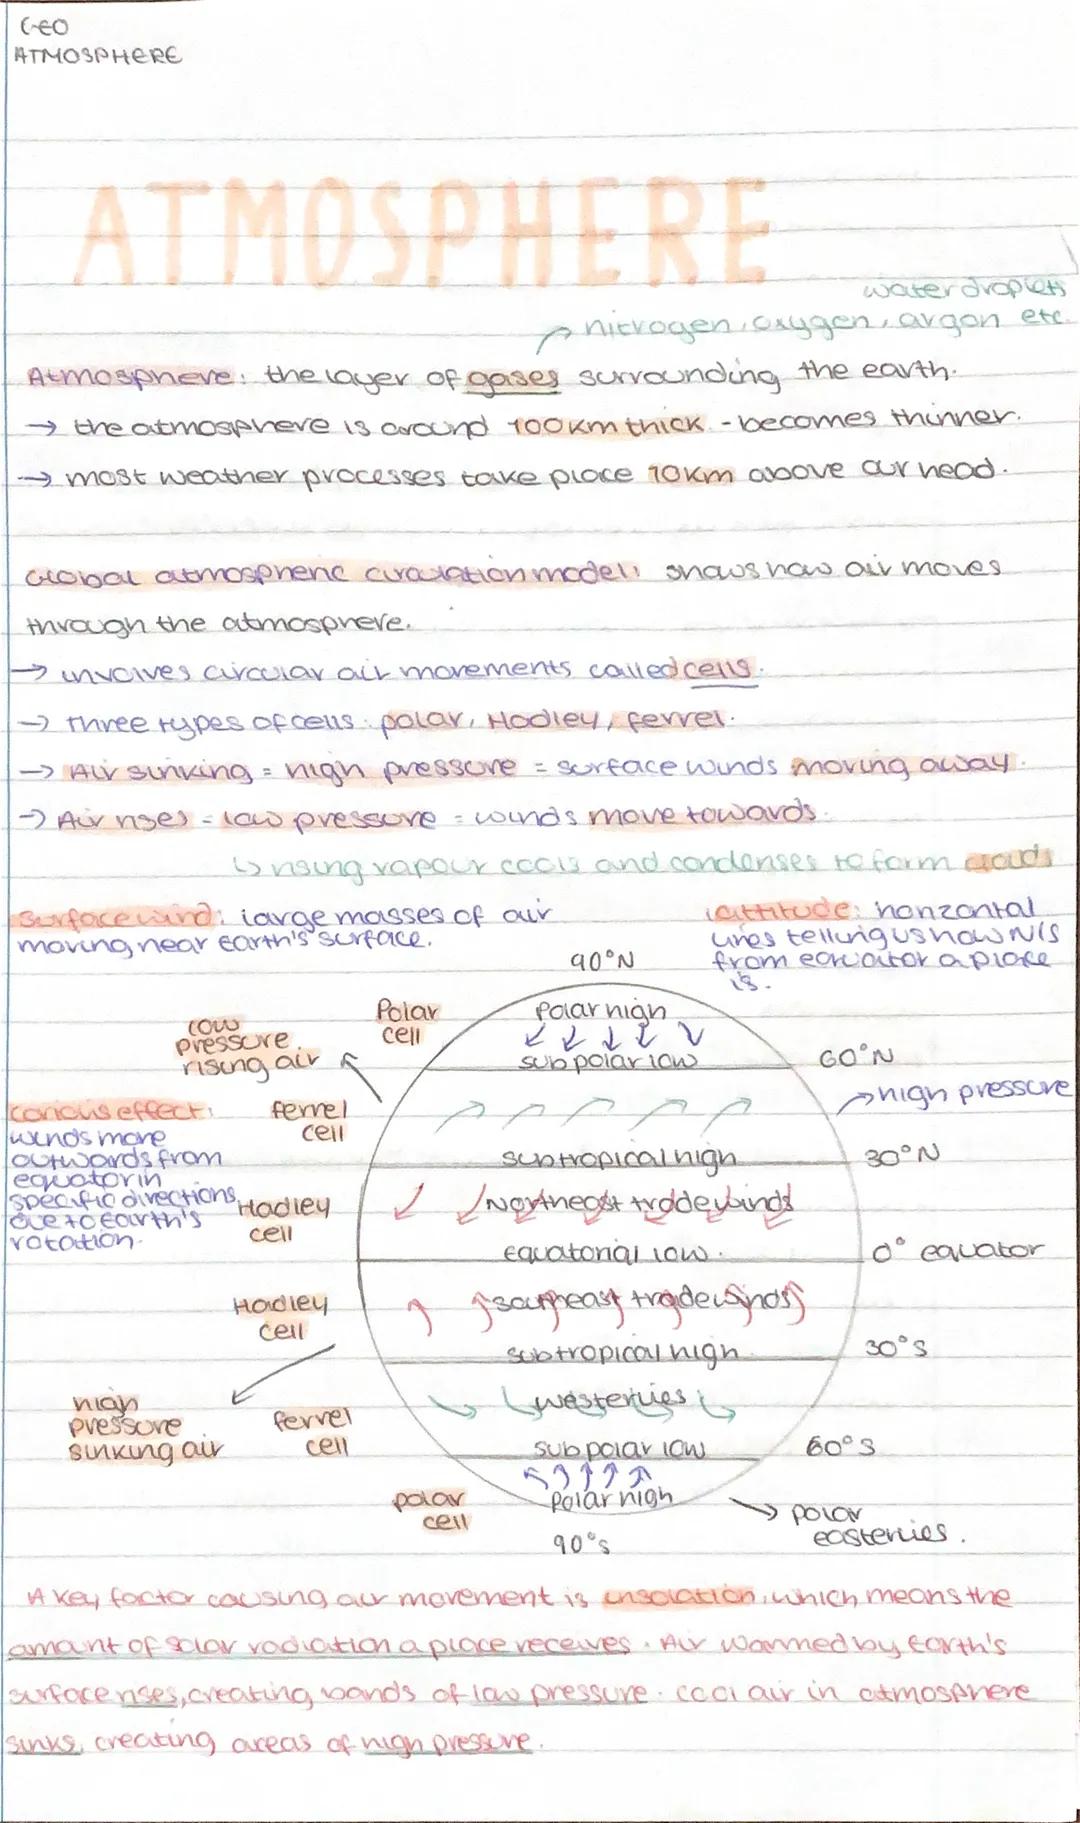 GEO
ATMOSPHERE
ATMOSPHERE
water droplets
→ nitrogen, oxygen, argon etc.
Atmosphere: the layer of gases surrounding the earth.
→ the atmosphere is around 100km thick - becomes thinner.
→ most weather processes take place 10km above our head.
Global atmospheric circulation model: shows how air moves
through the atmosphere.
→ involves circular air movements called cells.
→ three types of cells: polar, Hadley, ferrel.
→ Air sinking = high pressure = surface winds moving away.
→ Air rises = low pressure = winds move towards.
↳ rising vapour cools and condenses to form clouds
Surface wind: large masses of air
moving near Earth's surface.
lattitude: horizontal
lines telling us how N/S
from equator a place
is.
90°N
Polar
cell
Polar high
low
pressure.
rising air
subpolar low
60°N
→ high pressure
coriolis effect:
winds move
outwards from
equator in
specific directions
due to Earth's
rotation.
ferrel
cell
subtropical high
30°N
Hadley
cell
Northeast trade winds
equatorial low.
0° equator
Hadley
cell
southeast trade winds
subtropical high
30°S
high
pressure
sinking air
ferrel
cell
westerlies
subpolar low
60°S
polar
cell
Polar high
→ polar
easterlies.
90°S
A key factor causing air movement is insolation, which means the
amount of solar radiation a place receives. Air warmed by Earth's
surface rises, creating bands of low pressure. cool air in atmosphere
sinks, creating areas of high pressure.